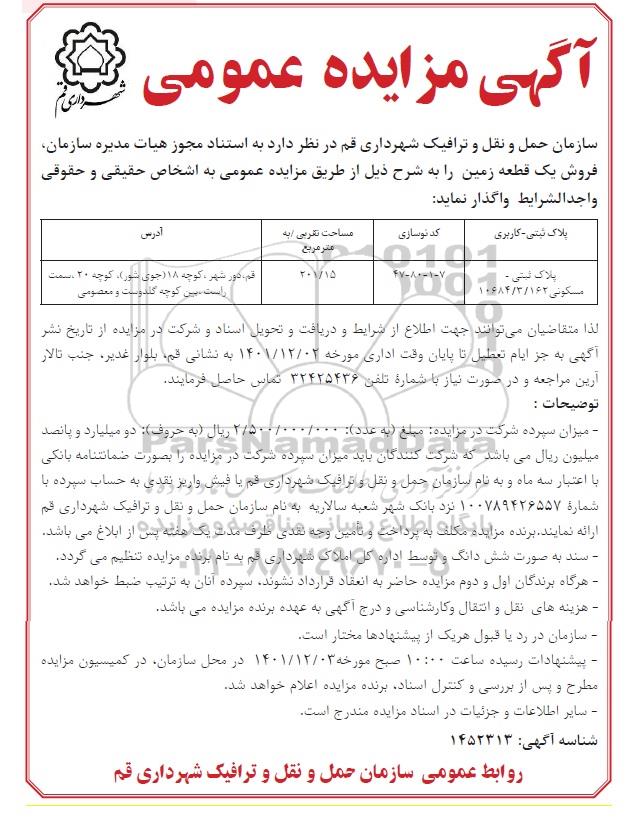 آگهی مزایده عمومی
شهرداری قم
سازمان حمل و نقل و ترافیک شهرداری قم در نظر دارد به استناد مجوز هیات مدیره سازمان،
فروش یک قطعه زمین را به شرح ذیل از طریق مزایده عمومی به اشخاص حقیقی و حقوقی
واجدالشرایط واگذار نماید:
پلاک ثبتی-کاربری
کد نوسازی
مساحت تقریبی /به
مترمربع
آدرس
پلاک ثبتی -
مسکونی۱۰۶۸۴/۳/۱۶۲
۴۷-۸۰-۱-۷
۲۰۱/۱۵
قم،دور شهر ،کوچه ۱۸(جوی شور)، کوچه ۲۰ ،سمت
راست ،بین کوچه گلدوست و معصومی
لذا متقاضیان می‌توانند جهت اطلاع از شرایط و دریافت و تحویل اسناد و شرکت در مزایده از تاریخ نشر
آگهی به جز ایام تعطیل تا پایان وقت اداری مورخه ۱۴۰۱/۱۲/۰۲ به نشانی قم، بلوار غدیر، جنب تالار
آرین مراجعه و در صورت نیاز با شمارهٔ تلفن ۳۲۴۲۵۴۳۶ تماس حاصل فرمایند.
توضیحات :
- میزان سپرده شرکت در مزایده: مبلغ (به عدد): ۲/۵۰۰/۰۰۰/۰۰۰ ریال (به حروف): دو میلیارد و پانصد
میلیون ریال می باشد که شرکت کنندگان باید میزان سپرده شرکت در مزایده را بصورت ضمانتنامه بانکی
با اعتبار سه ماه و به نام سازمان حمل و نقل و ترافیک شهرداری قم یا فیش واریز نقدی به حساب سپرده با
شمارهٔ ۱۰۰۷۸۹۴۲۶۵۵۷ نزد بانک شهر شعبه سالاریه به نام سازمان حمل و نقل و ترافیک شهرداری قم
ارائه نمایند.برنده مزایده مکلف به پرداخت و تأمین وجه نقدی ظرف مدت یک هفته پس از ابلاغ می باشد.
- سند به صورت شش دانگ و توسط اداره کل املاک شهرداری قم به نام برنده مزایده تنظیم می گردد.
- هرگاه برندگان اول و دوم مزایده حاضر به انعقاد قرارداد نشوند، سپرده آنان به ترتیب ضبط خواهد شد.
- هزینه های نقل و انتقال وکارشناسی و درج آگهی به عهده برنده مزایده می باشد.
- سازمان در رد یا قبول هریک از پیشنهادها مختار است.
- پیشنهادات رسیده ساعت ۱۰:۰۰ صبح مورخه۱۴۰۱/۱۲/۰۳ در محل سازمان، در کمیسیون مزایده
مطرح و پس از بررسی و کنترل اسناد، برنده مزایده اعلام خواهد شد.
- سایر اطلاعات و جزئیات در اسناد مزایده مندرج است.
شناسه آگهی: ۱۴۵۲۳۱۳
روابط عمومی سازمان حمل و نقل و ترافیک شهرداری قم